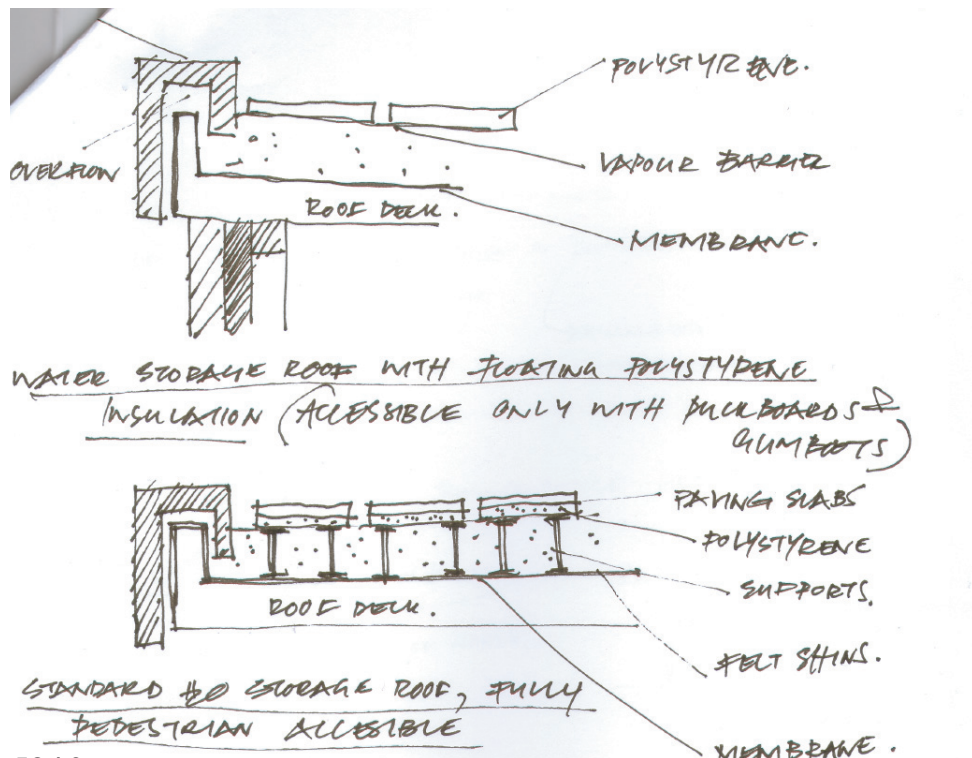 POLYSTYRENE.
OVERFLOW
VAPOUR BARRIER
ROOF DECK.
MEMBRANE.
WATER STORAGE ROOF WITH FLOATING POLYSTYRENE
INSULATION (ACCESSIBLE ONLY WITH DUCKBOARDS &
GUMBOOTS)
PAVING SLABS
POLYSTYRENE
SUPPORTS.
ROOF DECK.
FELT SHIMS.
STANDARD H2O STORAGE ROOF, FULLY
PEDESTRIAN ACCESIBLE
MEMBRANE.